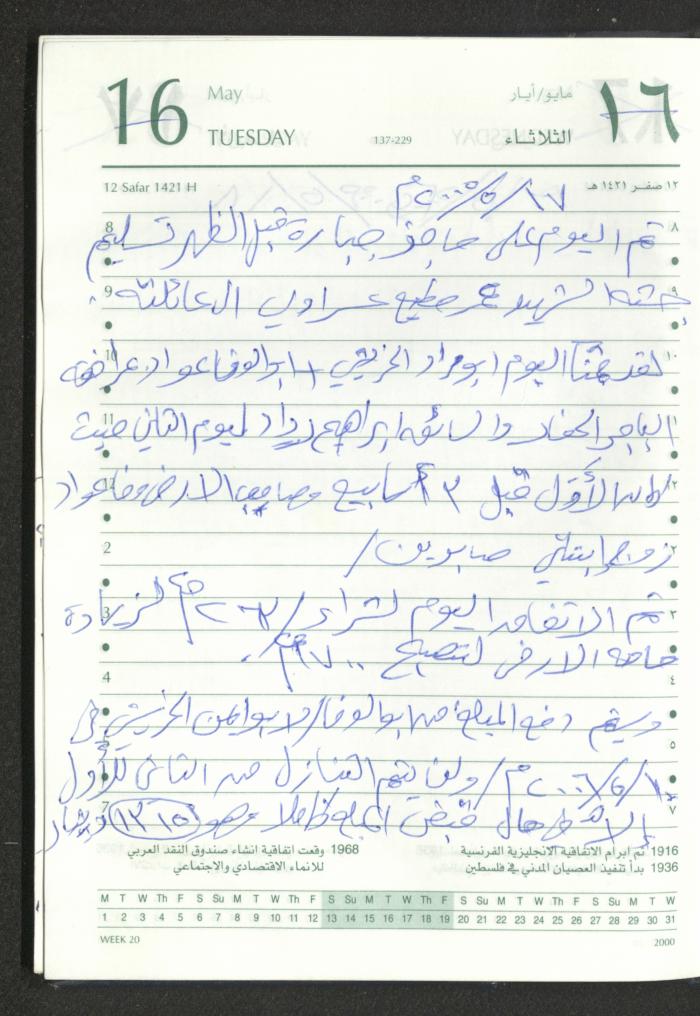 16 May مايو/أيار ١٦
TUESDAY 137-229 الثلاثاء
12 Safar 1421 H ١٢ صفر ١٤٢١ هـ
١٧/٥/٢٠٠٠م
8 تم اليوم على حاجز جبارة قبل الظهر تسليم ٨
9 جثة الشهيد عمر مطيع عساوي العائلته. ٩
10 لقد اليوم ابو مراد الخريشي + ابو الوفا عواد ١٠
11 الباجر الحفار والسائق ابراهيم رداد لليوم الثاني حيث ١١
12 كان الأول قبل ٣ أسابيع وصاحب الارض وفا عواد ١٢
2 زوج ابنتي صابرين/ ٢
3 تم الاتفاق اليوم لشراء / ٢٠٣م لزيادة ٣
4 الارض لتصبح ٧٠٠م. ٤
وسيتم دفع المبلغ من ابو الوفا لابو ايمن الخريشي في ٥
١٠/٦/٢٠٠٠م/ ولن يتم التنازل من الثاني للأول
7 إلا قبض المبلغ كاملا وهو ١٣١٥٠ دينار ٧
1968 وقعت اتفاقية انشاء صندوق النقد العربي للانماء الاقتصادي والاجتماعي
1916 تم ابرام الاتفاقية الانجليزية الفرنسية
1936 بدأ تنفيذ العصيان المدني في فلسطين
M T W Th F S Su M T W Th F S Su M T W Th F S Su M T W Th F S Su M T W
1 2 3 4 5 6 7 8 9 10 11 12 13 14 15 16 17 18 19 20 21 22 23 24 25 26 27 28 29 30 31
WEEK 20 2000